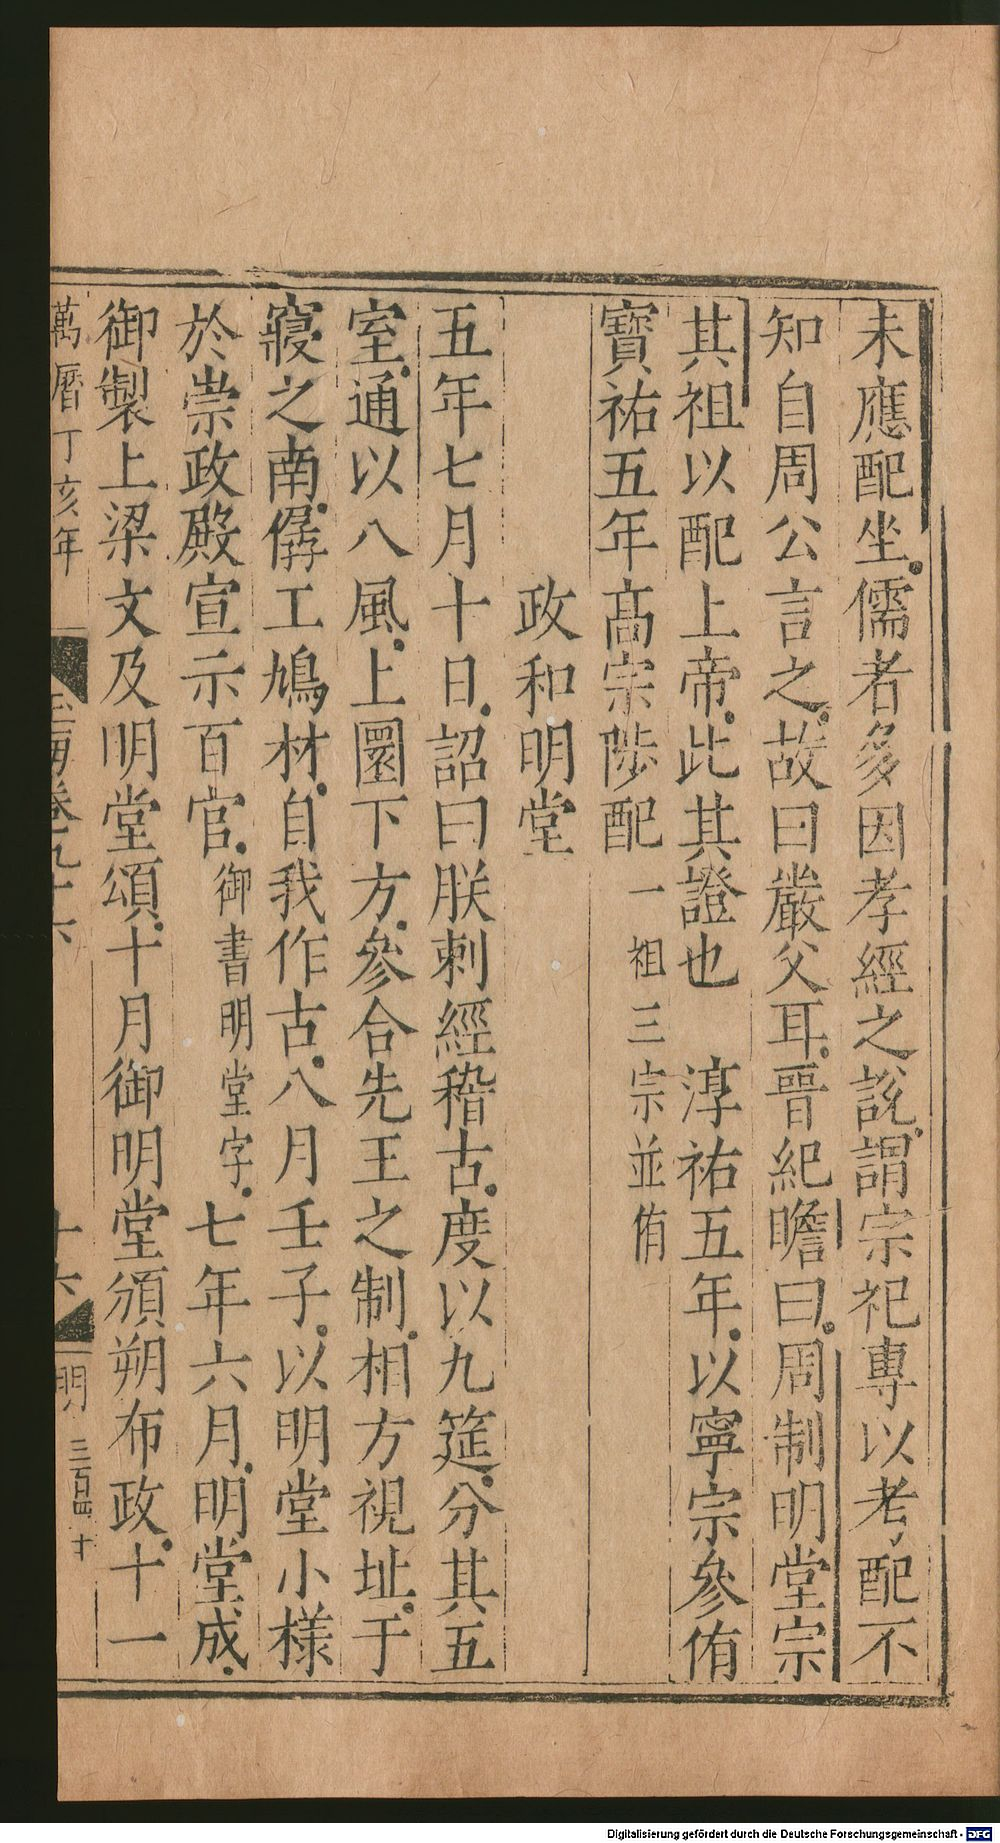 未應配坐儒者多因孝經之說謂宗祀專以考配不
知自周公言之故曰嚴父耳晉紀瞻曰周制明堂宗
其祖以配上帝此其證也　淳祐五年以寧宗參侑
寶祐五年高宗陟配一祖三宗並侑
政和明堂
五年七月十日詔曰朕刺經稽古度以九筵分其五
室通以八風上圜下方參合先王之制相方視址于
寢之南僝工鳩材自我作古八月壬子以明堂小樣
於崇政殿宣示百官御書明堂字七年六月明堂成
御製上梁文及明堂頌十月御明堂頒朔布政十一
萬曆丁亥年　玉海卷九十六　十六　明　三百四十
Digitalisierung gefördert durch die Deutsche Forschungsgemeinschaft - DFG